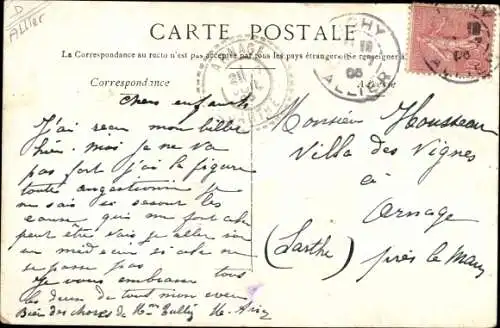 D
Allier
CARTE POSTALE
La Correspondance au recto n'est pas acceptée par tous les pays étrangers (Se renseigner
Correspondance
VICHY
05
ALLIER
ARNAGE
SARTHE
Chers enfants
J'ai reçu mon billet
hier. moi je ne va
pas fort j'ai la figure
toute
ne sais si
cause qui me font cela
peut être vais je aller voir
un médecin si cela ne
se passe pas
Je vous embrasse tous
les deux de tout mon cœur
Bien des choses de
Monsieur Housseau
Villa des Vignes
à
Arnage
(Sarthe) près le Mans